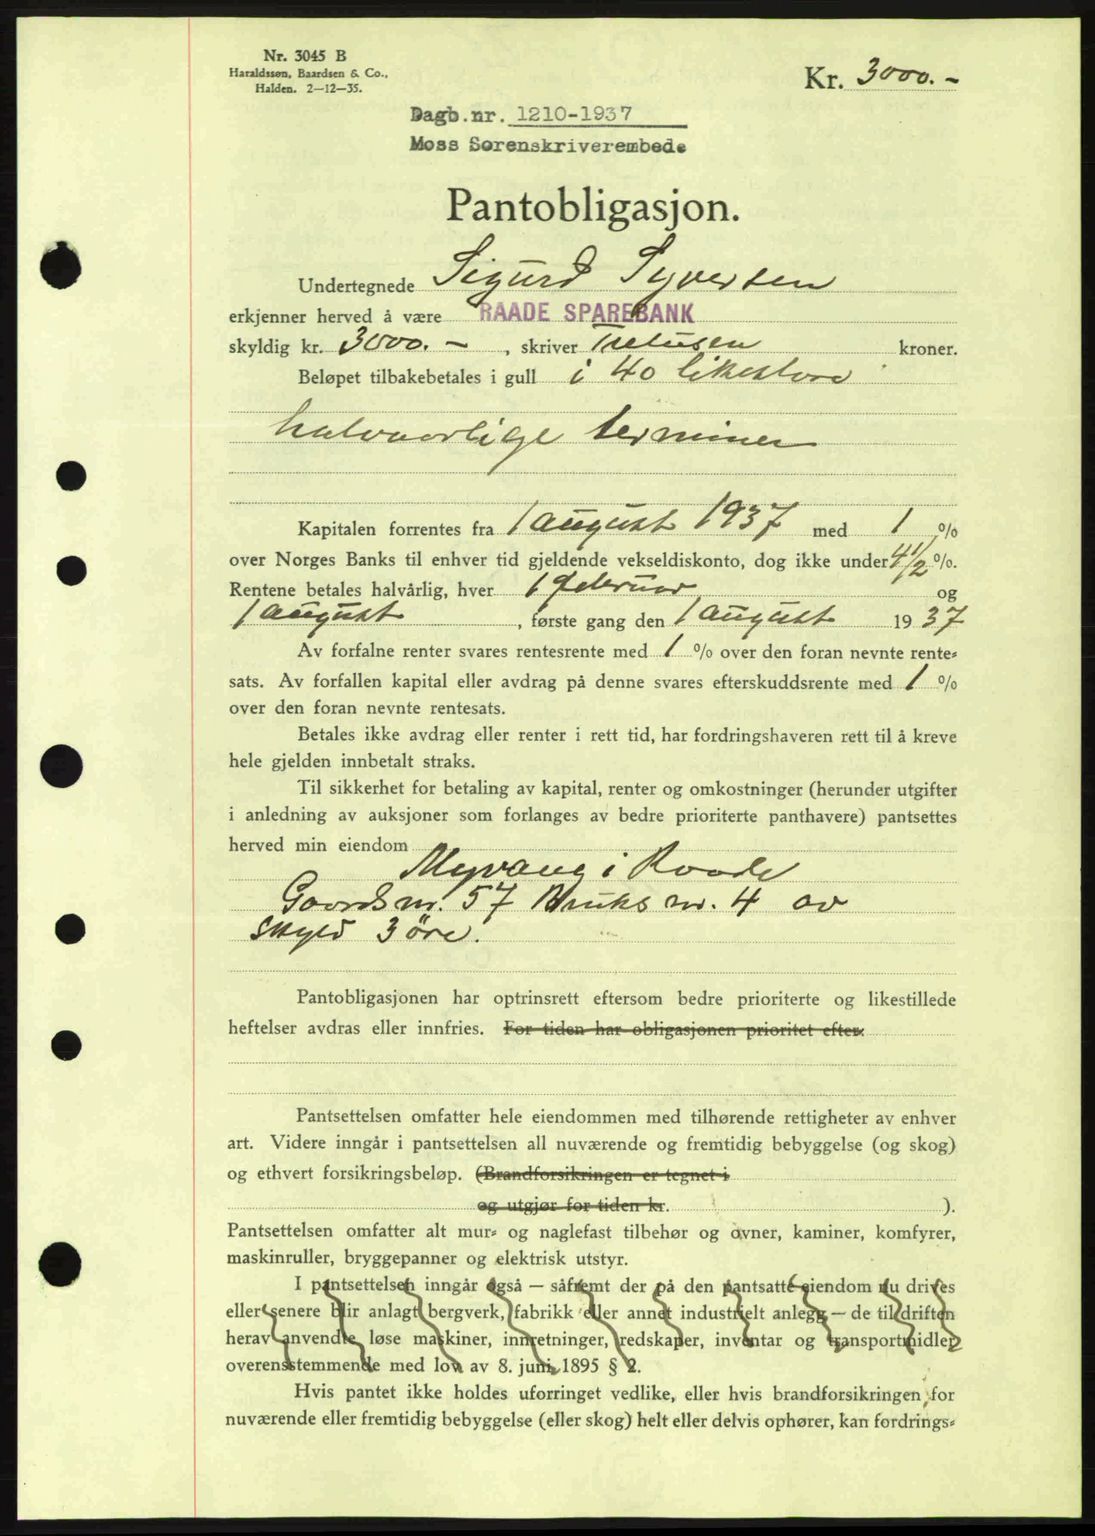 Nr. 3045 B
Haraldssøn, Baardsen & Co.,
Halden. 2—12—35.
Kr. 3000.-
Dagb.nr. 1210-1937
Moss Sorenskriverembede
Pantobligasjon.
Undertegnede Sigurd Syversen
erkjenner herved å være RAADE SPAREBANK
skyldig kr. 3000.-, skriver Tretusen kroner.
Beløpet tilbakebetales i gull i 40 likestore
halvaarlige terminer
Kapitalen forrentes fra 1 august 1937 med 1 %
over Norges Banks til enhver tid gjeldende vekseldiskonto, dog ikke under 4 1/2 %.
Rentene betales halvårlig, hver 1 februar og
1 august, første gang den 1 august 1937
Av forfalne renter svares rentesrente med 1 % over den foran nevnte rente-
sats. Av forfallen kapital eller avdrag på denne svares efterskuddsrente med 1 %
over den foran nevnte rentesats.
Betales ikke avdrag eller renter i rett tid, har fordringshaveren rett til å kreve
hele gjelden innbetalt straks.
Til sikkerhet for betaling av kapital, renter og omkostninger (herunder utgifter
i anledning av auksjoner som forlanges av bedre prioriterte panthavere) pantsettes
herved min eiendom Myrvang i Raade
Gaards nr. 57 Bruks nr. 4 av
skyld 3 öre.
Pantobligasjonen har optrinsrett eftersom bedre prioriterte og likestillede
heftelser avdras eller innfries. For tiden har obligasjonen prioritet efter:
Pantsettelsen omfatter hele eiendommen med tilhørende rettigheter av enhver
art. Videre inngår i pantsettelsen all nuværende og fremtidig bebyggelse (og skog)
og ethvert forsikringsbeløp. (Brandforsikringen er tegnet i
og utgjør for tiden kr. ).
Pantsettelsen omfatter alt mur- og naglefast tilbehør og ovner, kaminer, komfyrer,
maskinruller, bryggepanner og elektrisk utstyr.
I pantsettelsen inngår også — såfremt der på den pantsatte eiendom nu drives
eller senere blir anlagt bergverk, fabrikk eller annet industrielt anlegg — de til driften
herav anvendte løse maskiner, innretninger, redskaper, inventar og transportmidler
overensstemmende med lov av 8. juni 1895 § 2.
Hvis pantet ikke holdes uforringet vedlike, eller hvis brandforsikringen for
nuværende eller fremtidig bebyggelse (eller skog) helt eller delvis ophører, kan fordrings-